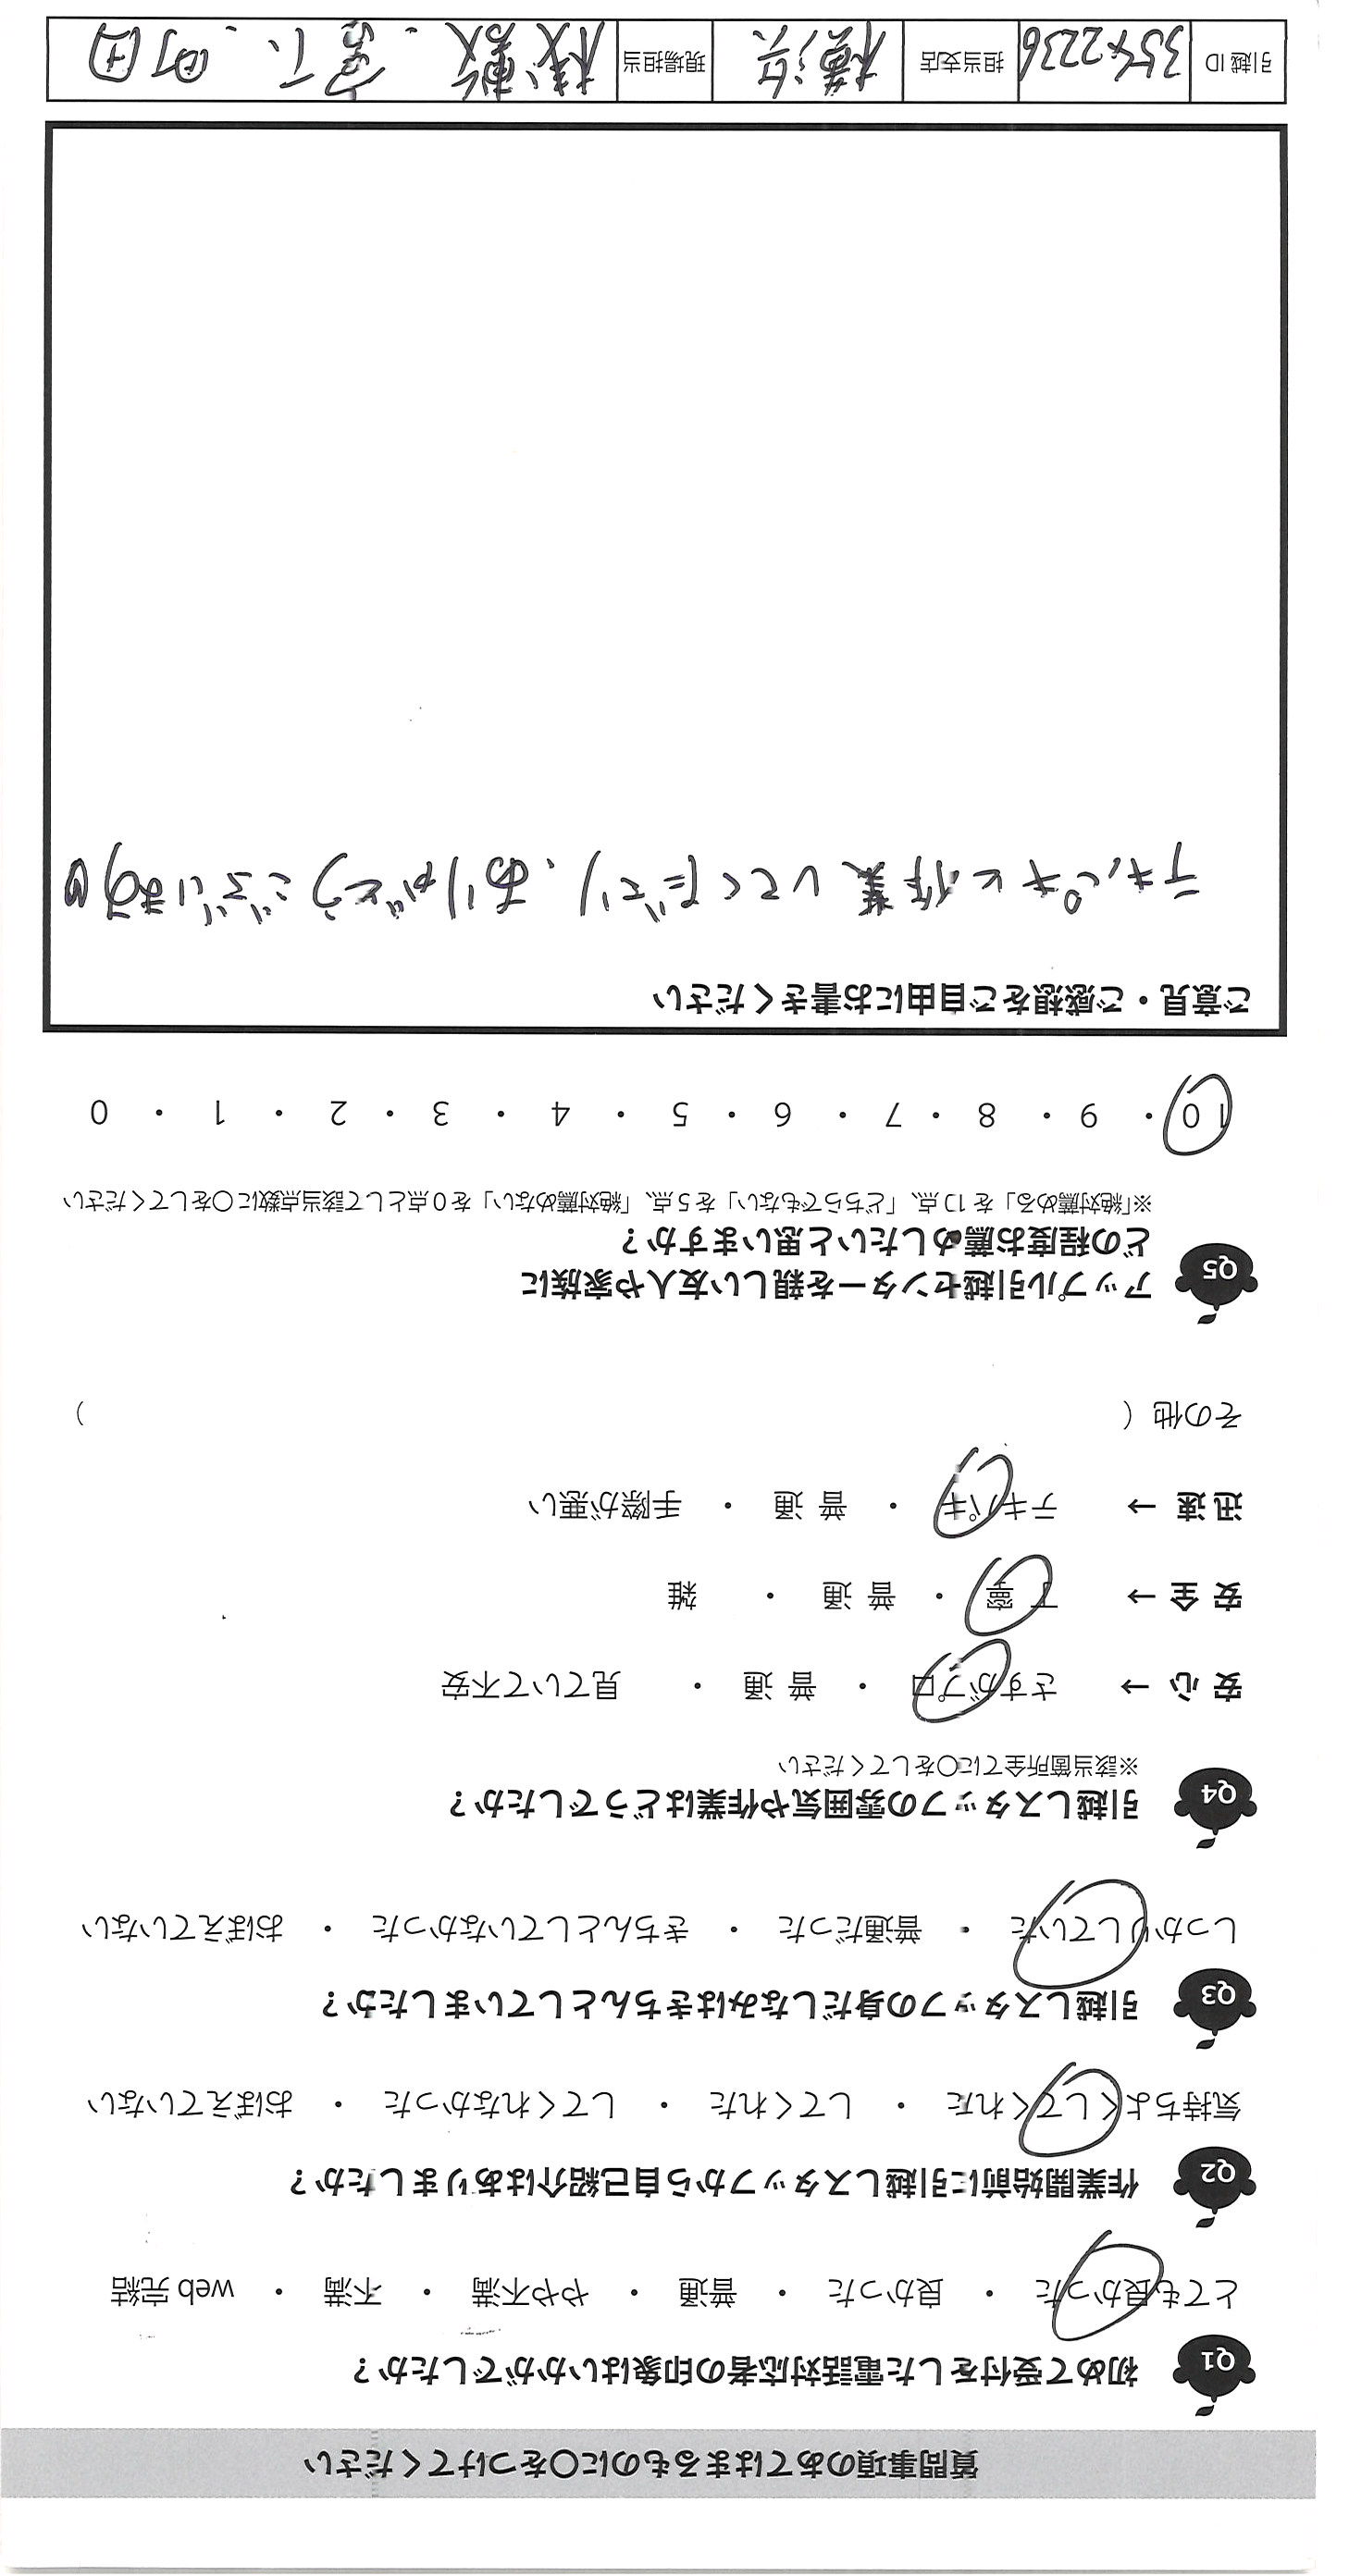 質問事項のあてはまるものに〇をつけてください
Q1 初めて受付をした電話対応者の印象はいかがでしたか？
とても良かった ・ 良かった ・ 普通 ・ やや不満 ・ 不満 ・ web 完結
Q2 作業開始前に引越しスタッフから自己紹介はありましたか？
気持ちよくしてくれた ・ してくれた ・ してくれなかった ・ おぼえていない
Q3 引越しスタッフの身だしなみはきちんとしていましたか？
しっかりしていた ・ 普通だった ・ きちんとしていなかった ・ おぼえていない
Q4 引越しスタッフの雰囲気や作業はどうでしたか？
※該当箇所全てに〇をしてください
安 心 → さすがプロ ・ 普 通 ・ 見ていて不安
安 全 → 丁 寧 ・ 普 通 ・ 雑
迅 速 → テキパキ ・ 普 通 ・ 手際が悪い
その他（ ）
Q5 アップル引越センターを親しい友人や家族に
どの程度お薦めしたいと思いますか？
※「絶対薦める」を 10 点、「どちらでもない」を 5 点、「絶対薦めない」を 0 点として該当点数に〇をしてください
10 ・ 9 ・ 8 ・ 7 ・ 6 ・ 5 ・ 4 ・ 3 ・ 2 ・ 1 ・ 0
ご意見・ご感想をご自由にお書きください
テキパキと作業してくださり、ありがとうございます。
引越 ID 3542236 担当支店 横浜 現場担当 宮下、町田